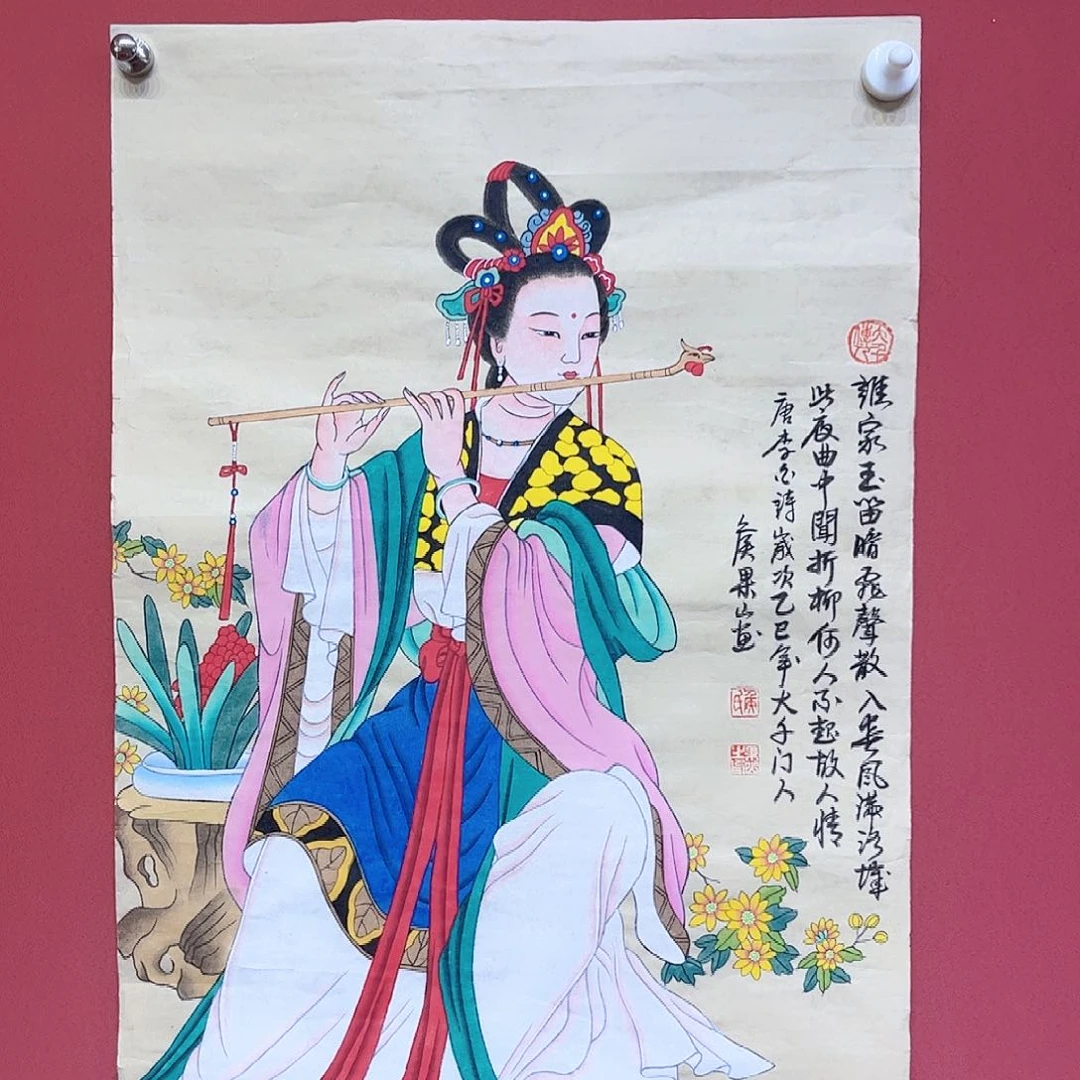 誰家玉笛暗飛聲散入春風滿洛城
此夜曲中聞折柳何人不起故人情
唐李白詩歲次乙巳年大千门人
侯果山畫